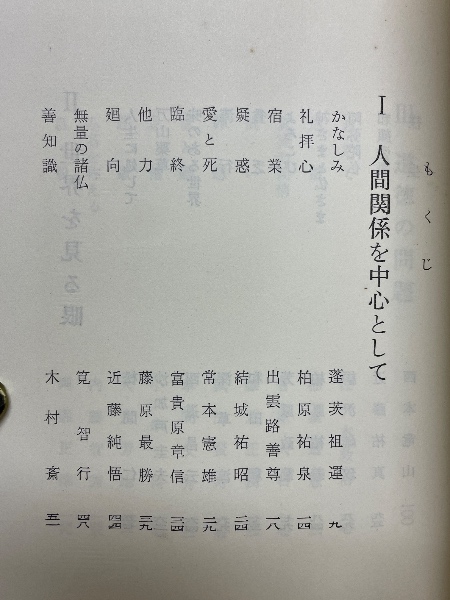 もくじ
Ⅰ 人間関係を中心として
かなしみ 蓬茨祖運 九
礼拝心 柏原祐泉 一四
宿業 出雲路善尊 一八
疑惑 結城祐昭 二四
愛と死 常本憲雄 二九
臨終 富貴原章信 三四
他力 藤原最勝 三九
廻向 近藤純悟 四四
無量の諸仏 寛智行 四八
善知識 木村斎 五一